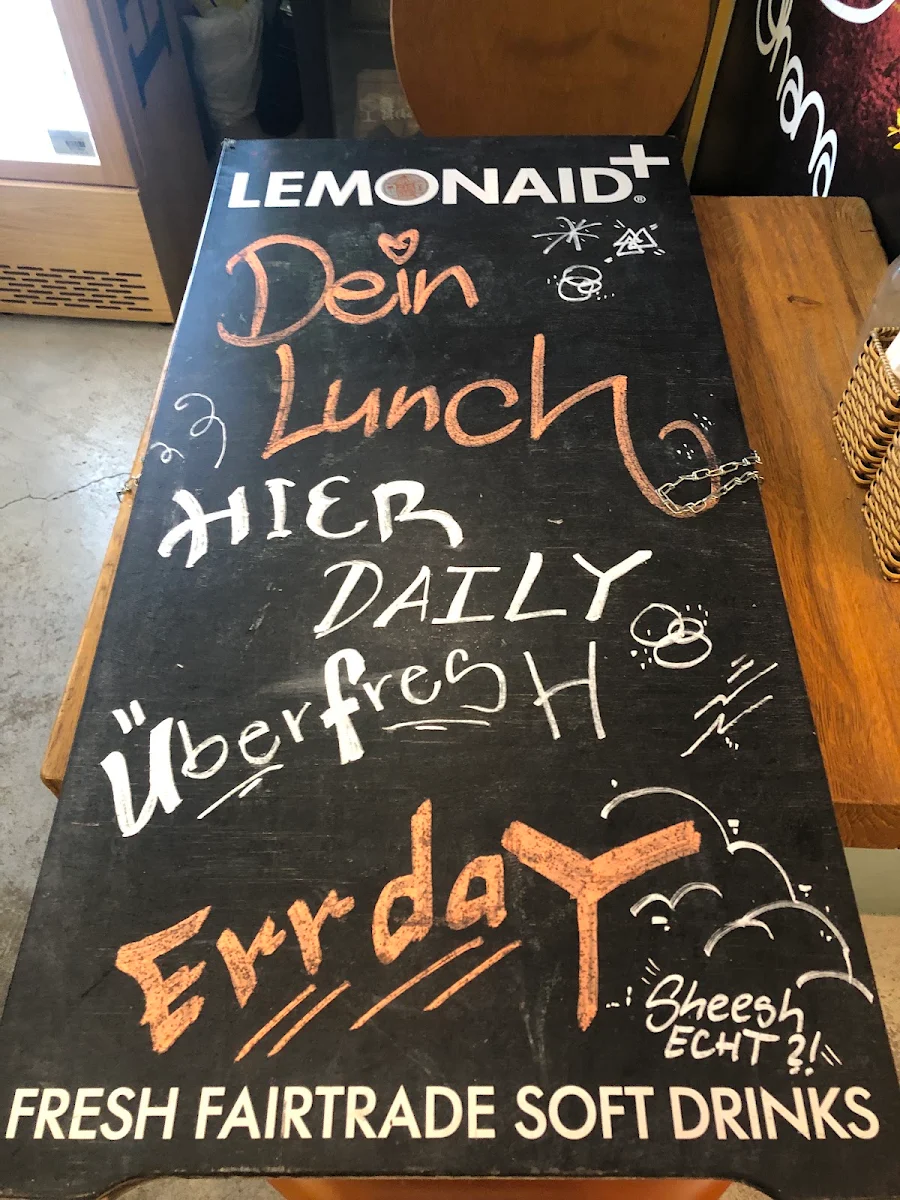 LEMONAID+®
Dein
Lunch
HIER
DAILY
ÜberfresH
ErrdaY
Sheesh
ECHT ?!
FRESH FAIRTRADE SOFT DRINKS